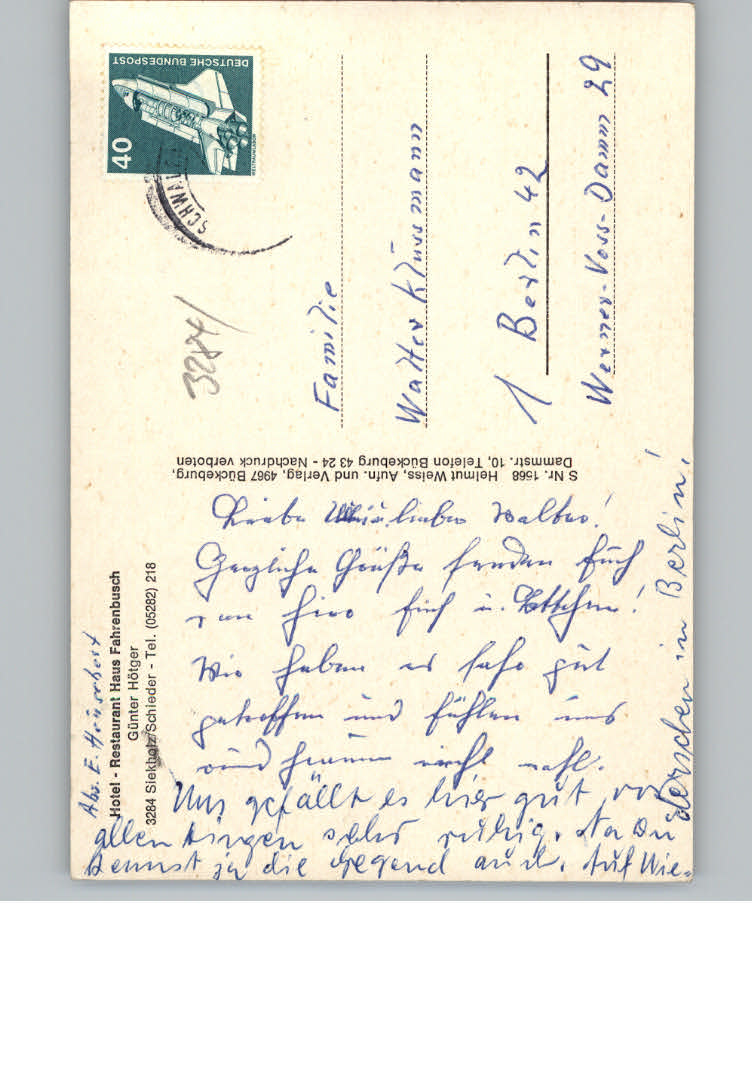 DEUTSCHE BUNDESPOST
40
WELTRAUMLABOR
SCHWAL
3284/
Familie
Walter Klussmann
1 Berlin 42
Werner-Voss-Damm 29
S Nr. 1568 Helmut Weiss, Aufn. und Verlag, 4967 Bückeburg,
Dammstr. 10, Telefon Bückeburg 43 24 - Nachdruck verboten
Abs. E.
Hotel - Restaurant Haus Fahrenbusch
Günter Hötger
3284 Siekholz/Schieder - Tel. (05282) 218
Liebe lieber Walter!
Herzliche Grüße senden Euch
von hier u.
Wir haben es sehr gut
getroffen und fühlen uns
wohl.
Uns gefällt es hier gut, vor
allen Dingen sehr ruhig. Na Du
kennst ja die Gegend auch. Auf Wie-
dersehen in Berlin!